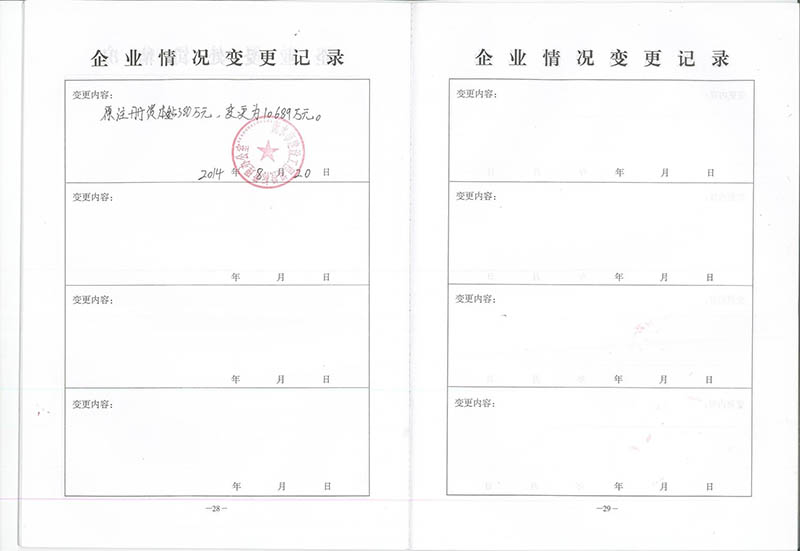 企业情况变更记录
变更内容：
原注册资本 万元，变更为10689万元。
2014年8月20日
变更内容：
年 月 日
变更内容：
年 月 日
变更内容：
年 月 日
—28—
企业情况变更记录
变更内容：
年 月 日
变更内容：
年 月 日
变更内容：
年 月 日
变更内容：
年 月 日
—29—